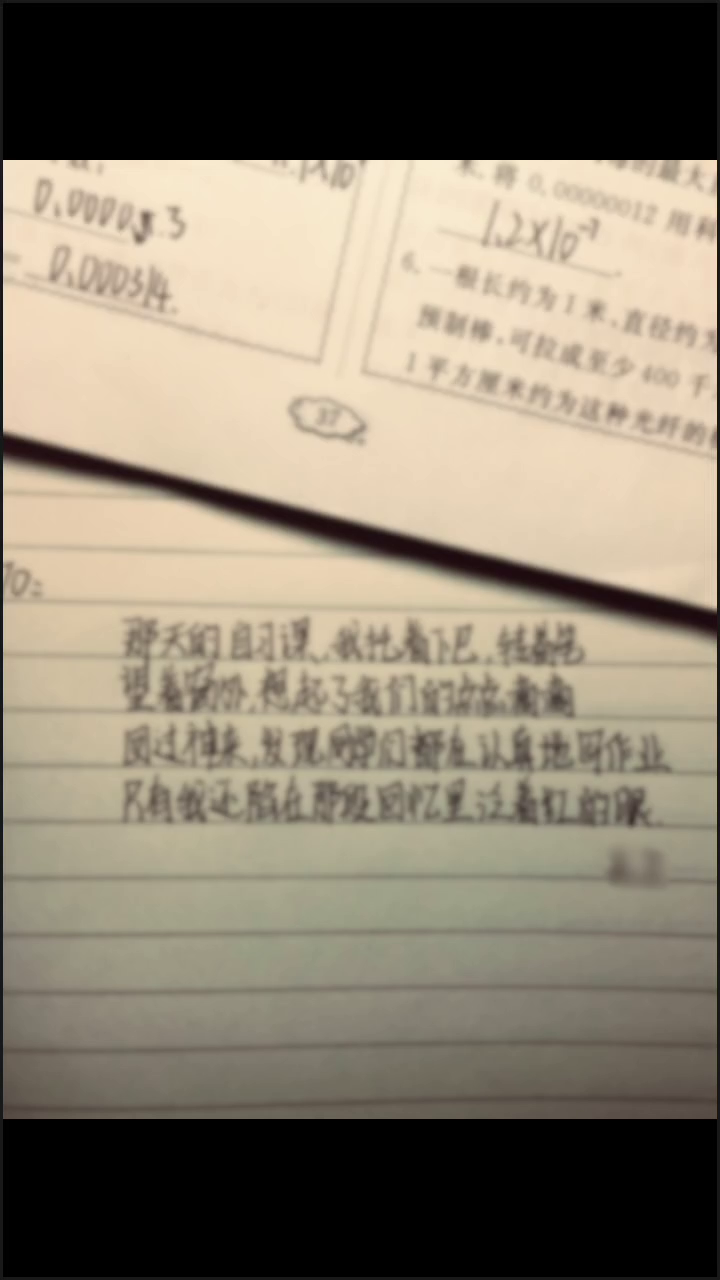 0.0000 3
0.000314.
米,将 0.00000012 用科
1.2×10⁻⁷
6. 一根长约为1米,直径约为
预制棒,可拉成至少400千
1平方厘米约为这种光纤的
37
To:
那天的自习课,我托着下巴,转着笔
望着窗外,想起了我们的点点滴滴
回过神来,发现同学们都在认真地写作业
只有我还陷在那段回忆里泛着红的眼.